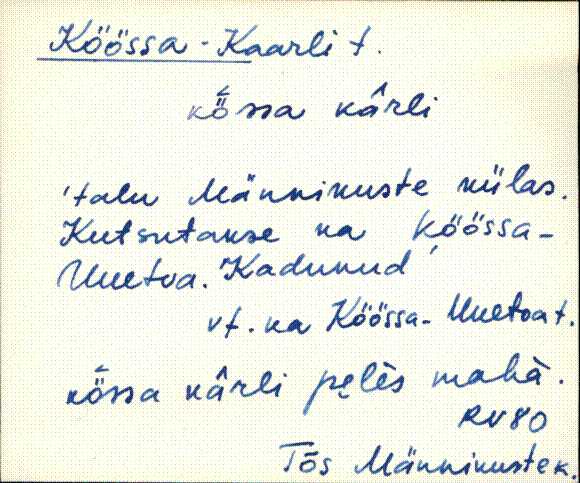 Köössa-Kaarli t.
kö̂ssa kârli
'talu Männikuste külas.
Kutsutakse ka köössa-
Uuetoa. Kadunud'
vt. ka Köössa-Uuetoa t.
kö̂ssa kârli pęlè̀s mahà.
RV80
Tõs Männikuste k.